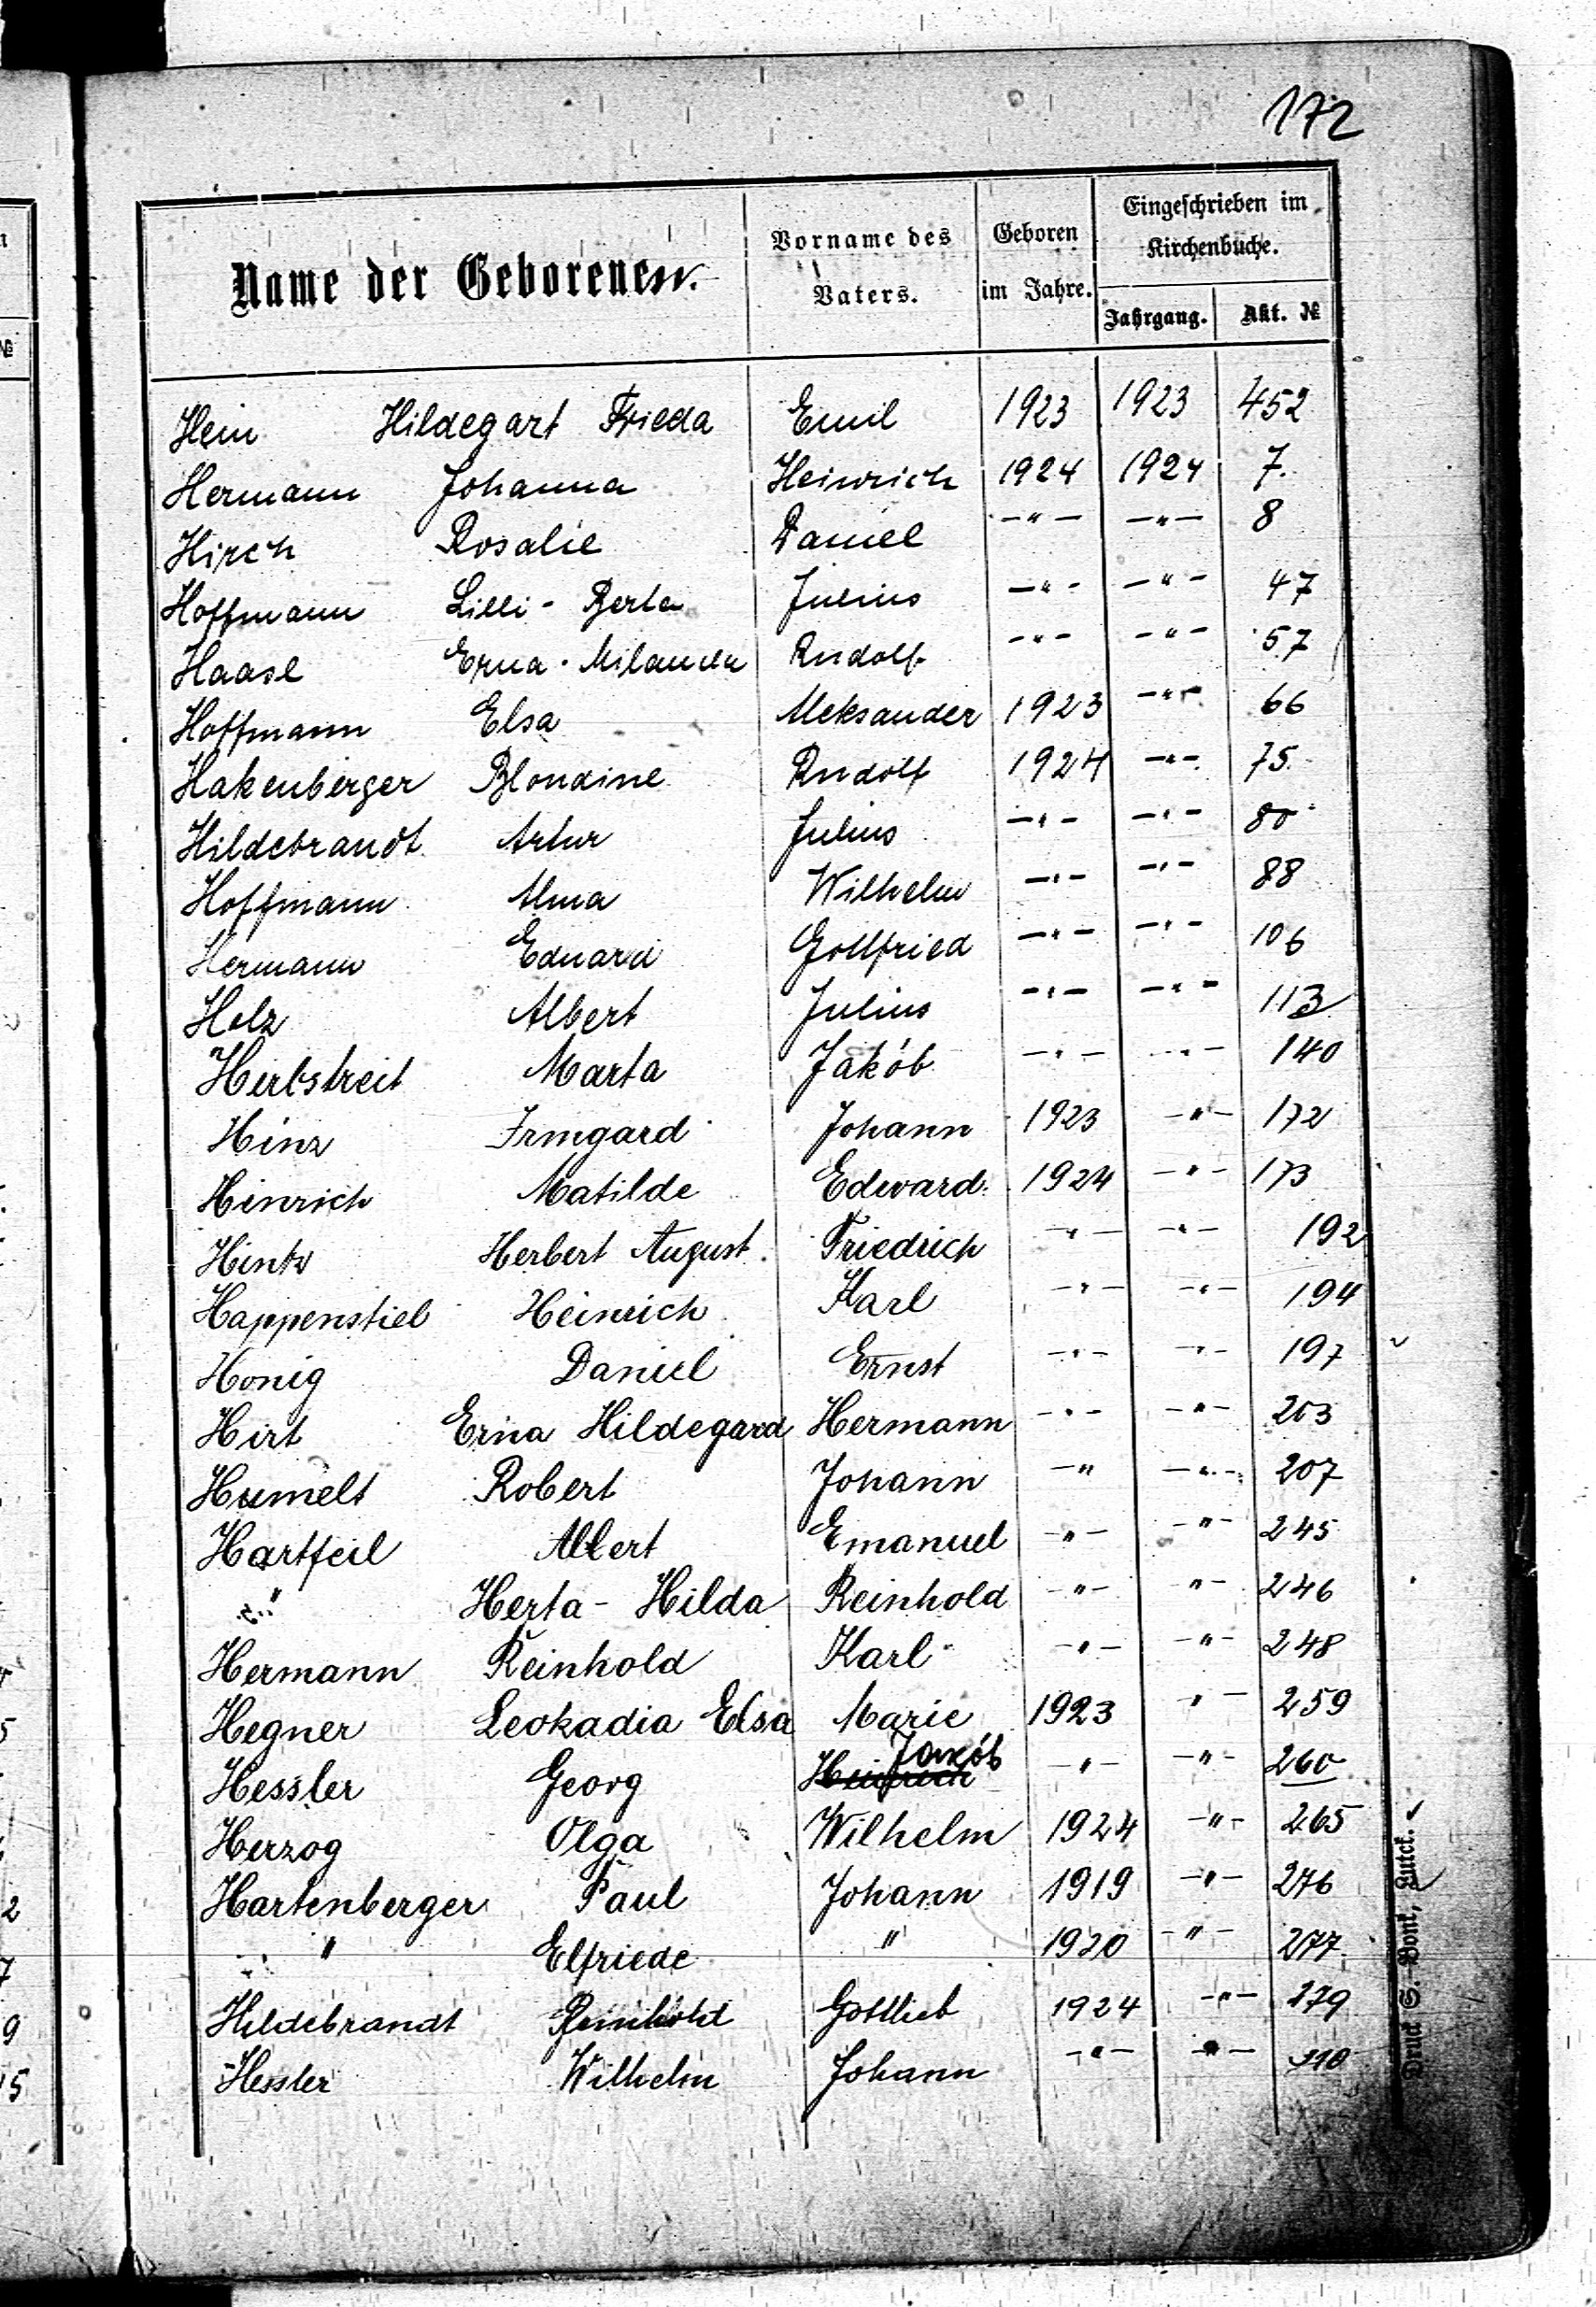 172
Name der Geborenen. Vorname des Vaters. Geboren im Jahre. Eingeschrieben im Kirchenbuche. Jahrgang. Akt. №
Hein Hildegart Frieda Emil 1923 1923 452
Hermann Johanna Heinrich 1924 1924 7.
Hirch Rosalie Daniel -"- -"- 8
Hoffmann Lilli - Berta Julius -"- -"- 47
Haase Erna - Milanda Rudolf -"- -"- 57
Hoffmann Elsa Aleksander 1923 -"- 66
Hakenberger Blondine Rudolf 1924 -"- 75.
Hildebrandt Artur Julius -"- -"- 80
Hoffmann Alma Wilhelm -"- -"- 88
Hermann Eduard Gottfried -"- -"- 106
Holz Albert Julius -"- -"- 113
Herbstreit Marta Jakób -"- -"- 140
Hinz Irmgard Johann 1923 -"- 172
Hinrich Matilde Edward 1924 -"- 173
Hintz Herbert August Friedrich -"- -"- 192
Happenstiel Heinrich Karl -"- -"- 194
Honig Daniel Ernst -"- -"- 197
Hirt Erna Hildegard Hermann -"- -"- 203
Humelt Robert Johann -" -"- 207
Hartfeil Albert Emanuel -"- -"- 245
" Herta - Hilda Reinhold -"- "- 246
Hermann Reinhold Karl -"- -"- 248
Hegner Leokadia Elsa Marie 1923 "- 259
Hessler Georg Heinrich Jakób -"- -"- 260
Herzog Olga Wilhelm 1924 -"- 265
Hartenberger Paul Johann 1919 -"- 276
" Elfriede " 1920 -"- 277
Hildebrandt Reinhold Gottlieb 1924 -"- 279
Hessler Wilhelm Johann -"- -"-
Druck S. Bonk, Lutck.